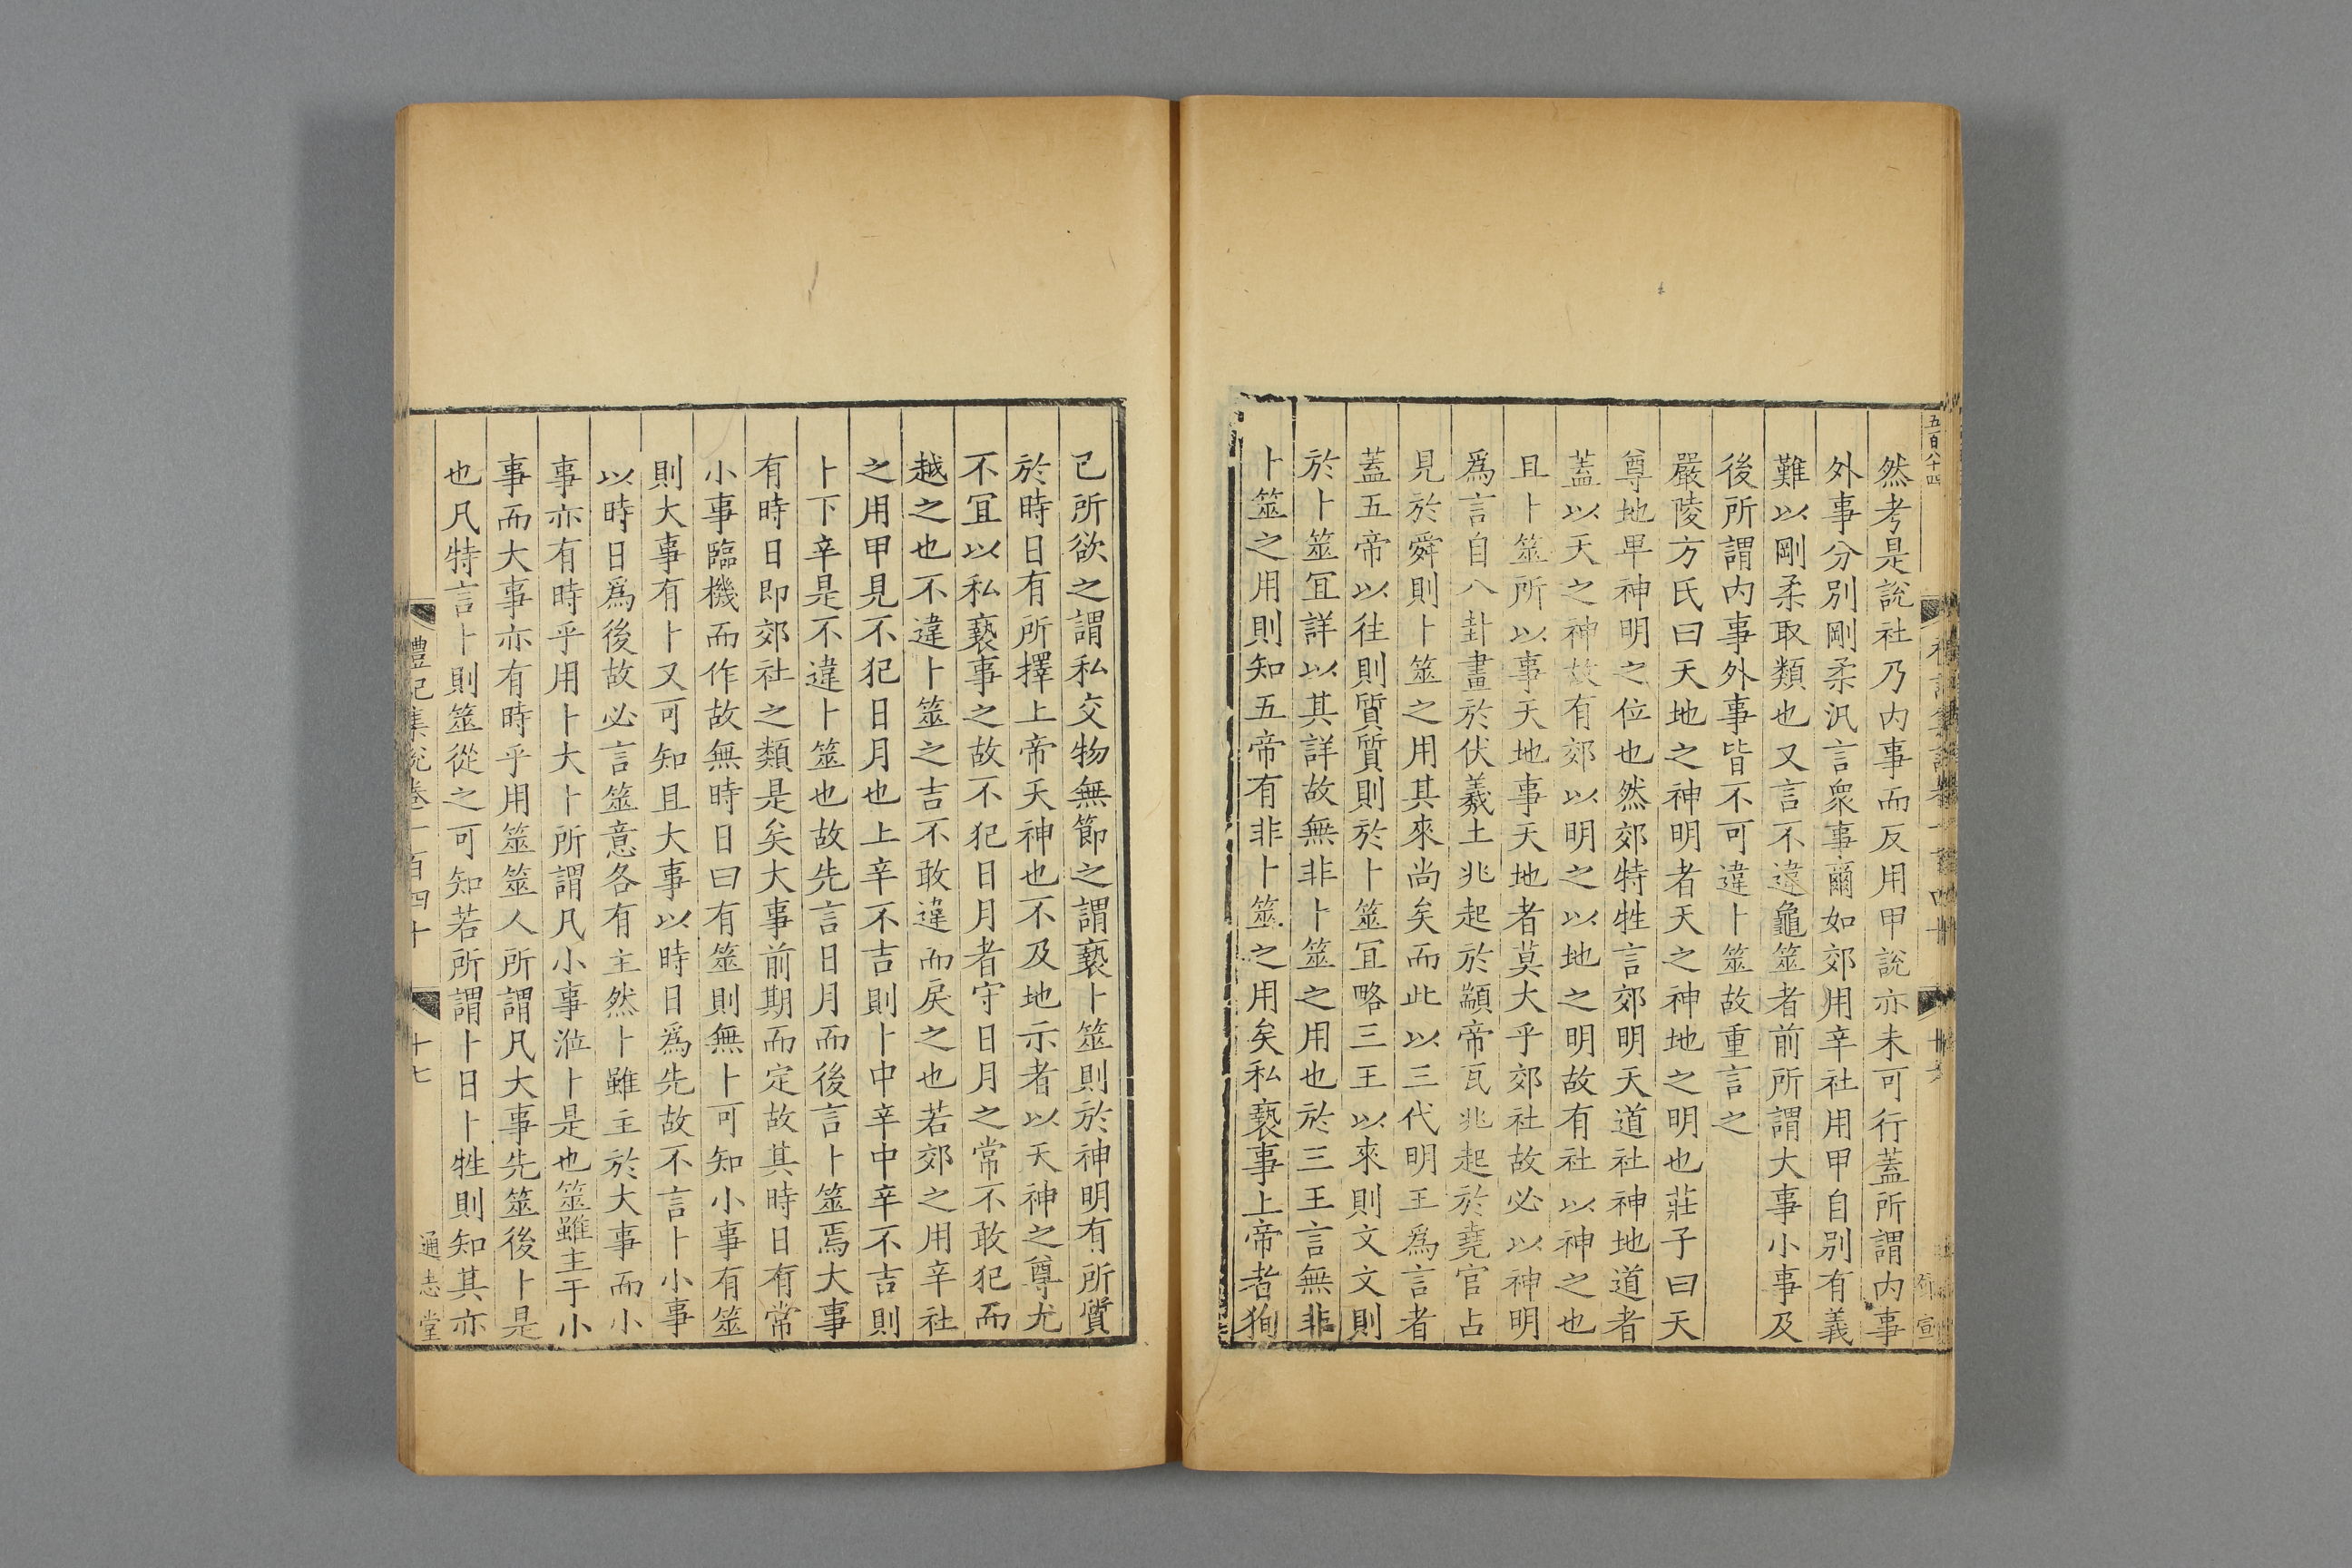 五百八十四
然考是說社乃內事而反用甲說亦未可行蓋所謂內事
外事分別剛柔汎言衆事爾如郊用辛社用甲自別有義
難以剛柔取類也又言不違龜筮者前所謂大事小事及
後所謂內事外事皆不可違卜筮故重言之
嚴陵方氏曰天地之神明者天之神地之明也莊子曰天
尊地卑神明之位也然郊特牲言郊明天道社神地道者
蓋以天之神故有郊以明之以地之明故有社以神之也
且卜筮所以事天地事天地者莫大乎郊社故必以神明
爲言自八卦畫於伏羲土兆起於顓帝瓦兆起於堯官占
見於舜則卜筮之用其來尚矣而此以三代明王爲言者
蓋五帝以往則質質則於卜筮宜略三王以來則文文則
於卜筮宜詳以其詳故無非卜筮之用也於三王言無非
卜筮之用則知五帝有非卜筮之用矣私褻事上帝者狥
己所欲之謂私交物無節之謂褻卜筮則於神明有所質
於時日有所擇上帝天神也不及地示者以天神之尊尤
不宜以私褻事之故不犯日月者守日月之常不敢犯而
越之也不違卜筮之吉不敢違而戾之也若郊之用辛社
之用甲見不犯日月也上辛不吉則卜中辛中辛不吉則
卜下辛是不違卜筮也故先言日月而後言卜筮焉大事
有時日即郊社之類是矣大事前期而定故其時日有常
小事臨機而作故無時日曰有筮則無卜可知小事有筮
則大事有卜又可知且大事以時日爲先故不言卜小事
以時日爲後故必言筮意各有主然卜雖主於大事而小
事亦有時乎用卜大卜所謂凡小事涖卜是也筮雖主于小
事而大事亦有時乎用筮筮人所謂凡大事先筮後卜是
也凡特言卜則筮從之可知若所謂卜日卜牲則知其亦
禮記集說卷一百四十
十七
通志堂